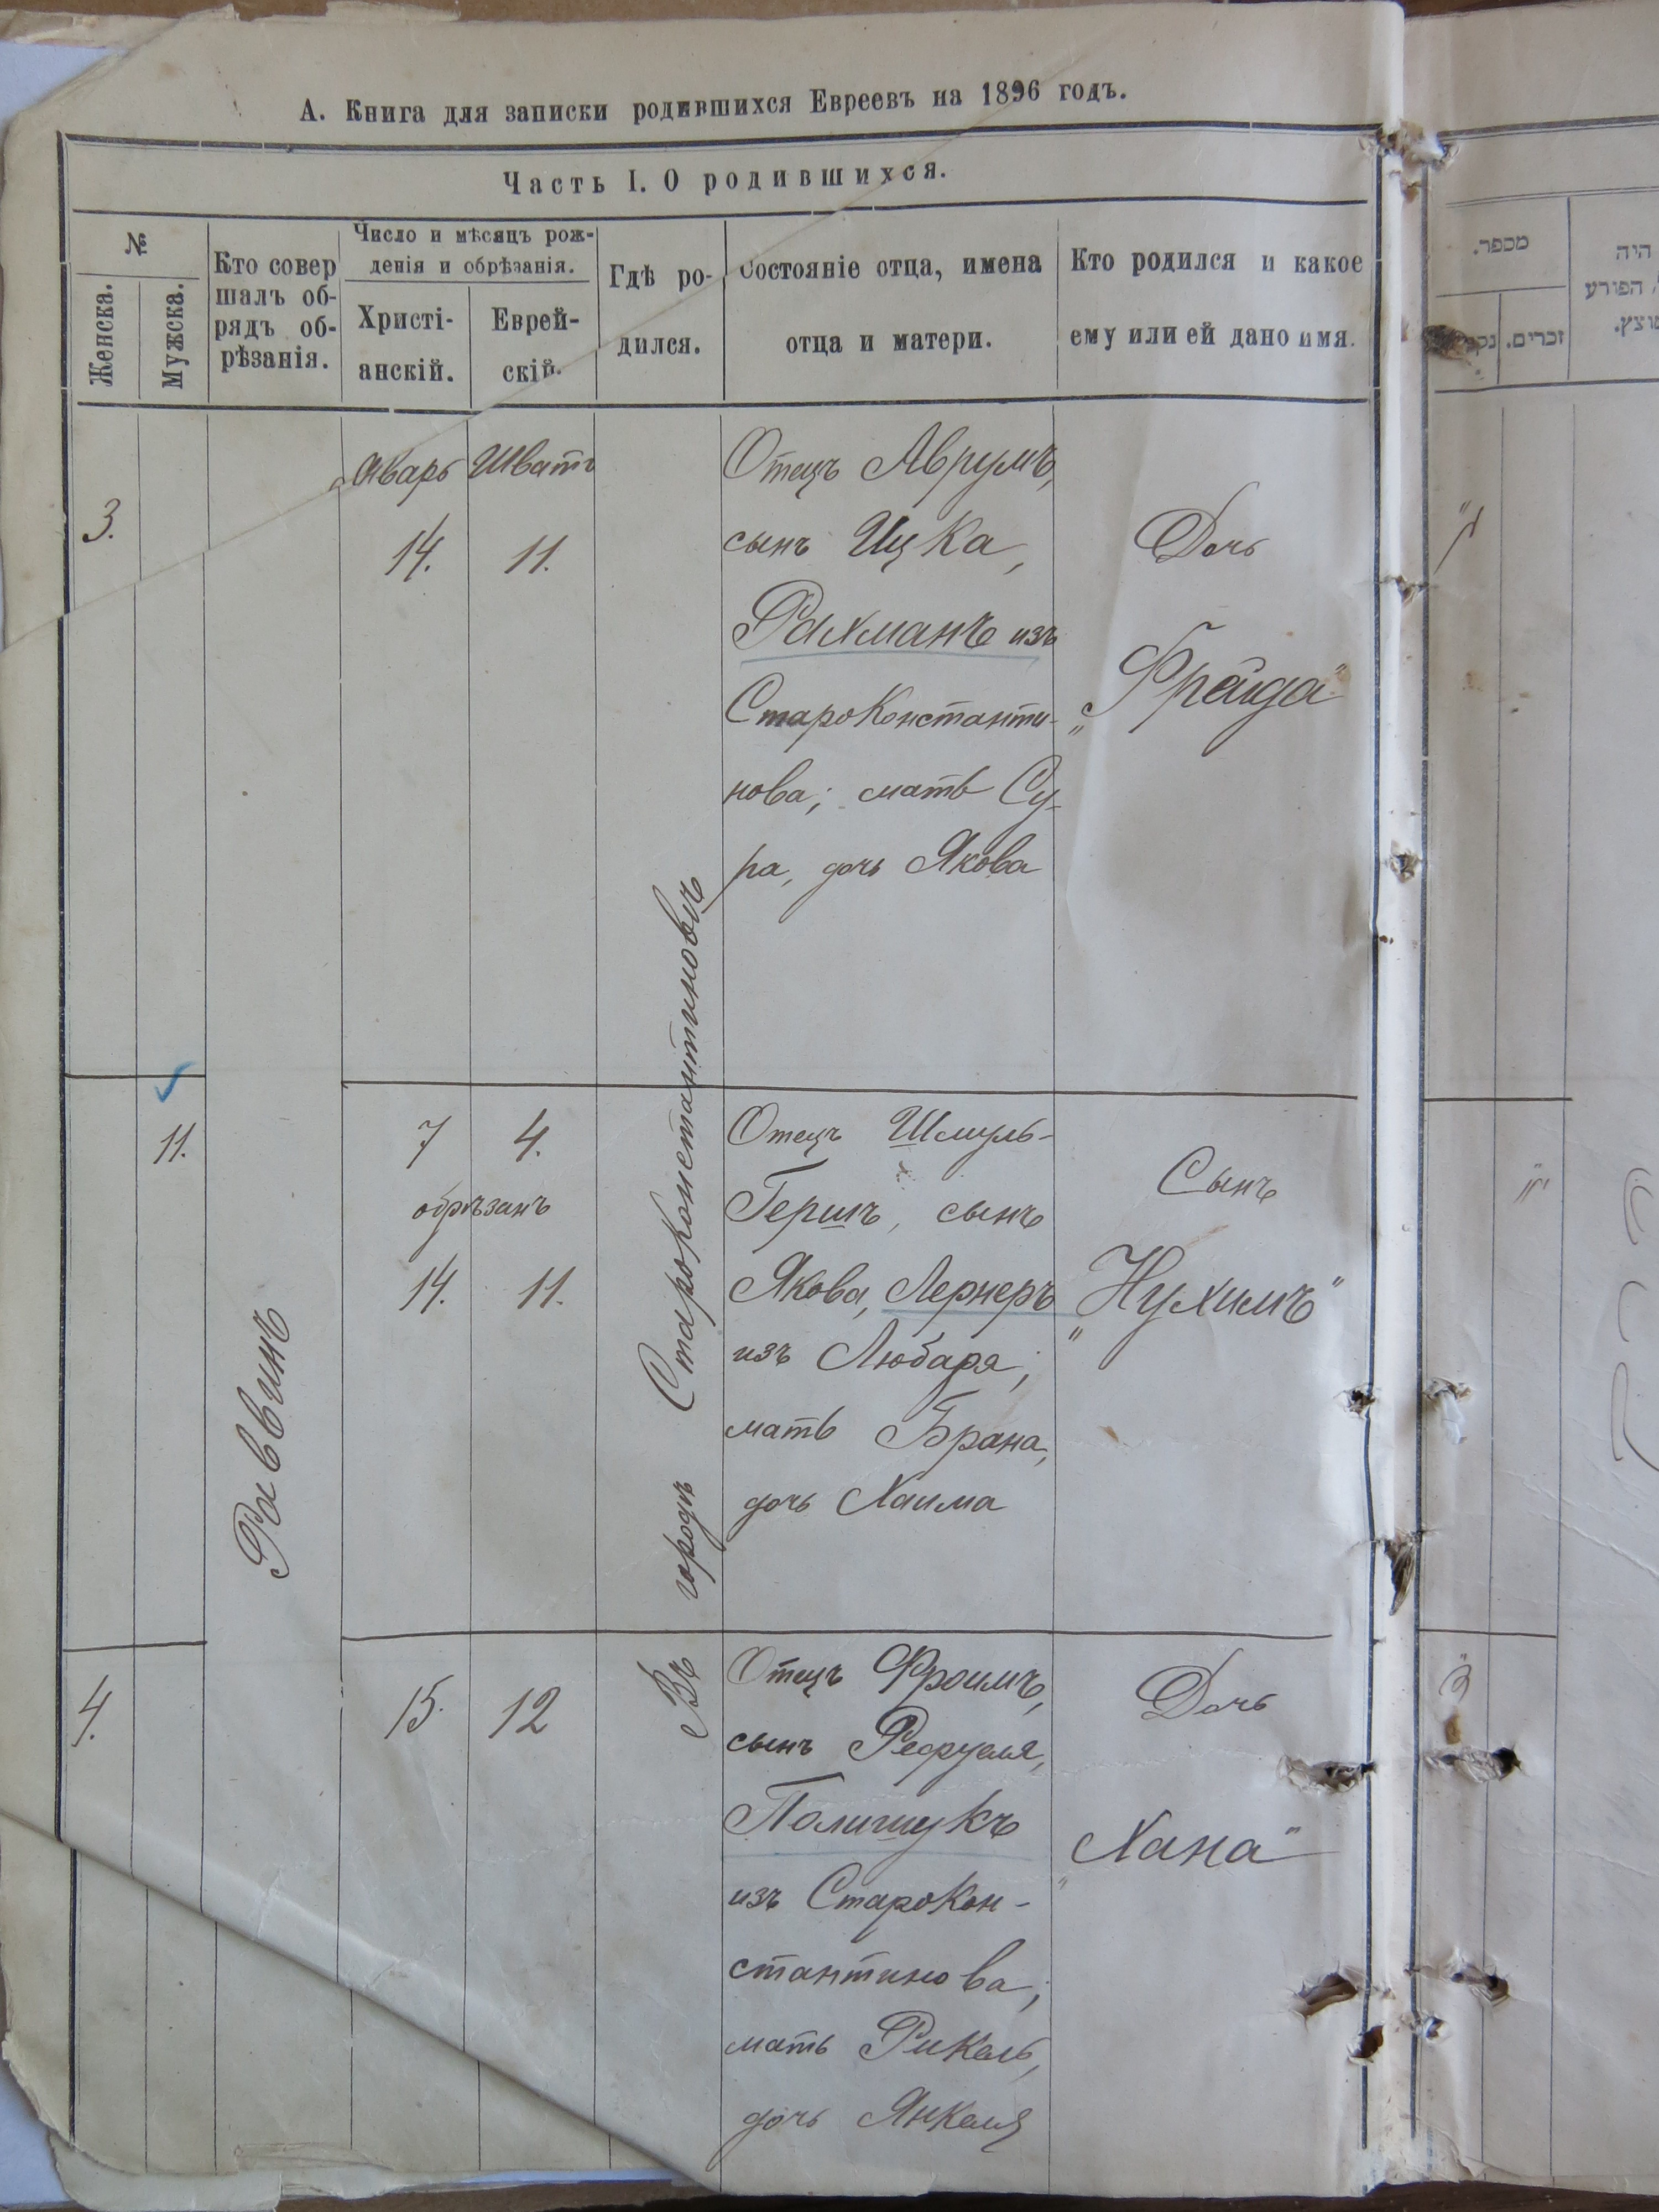 А. Книга для записки родившихся Евреевъ на 1896 годъ.
Часть I. О родившихся.
№
Женска.
Мужска.
Кто совер
шалъ об-
рядъ об-
рѣзанія.
Число и мѣсяцъ рож-
денія и обрѣзанія.
Христі-
анскій.
Еврей-
скій.
Гдѣ ро-
дился.
Состояніе отца, имена
отца и матери.
Кто родился и какое
ему или ей дано имя.
3.
Январь Шватъ
14. 11.
Отецъ Аврумъ,
сынъ Ицка,
Рахманъ изъ
Староконстанти-
нова; мать Су-
ра, дочь Якова
Дочь
„Фрейда"
Раввинъ
Въ городѣ Староконстантиновѣ
11.
7 4.
обрѣзанъ
14. 11.
Отецъ Шмуль-
Гершъ, сынъ
Якова, Лернеръ
изъ Любара;
мать Брана,
дочь Хаима
Сынъ
„Нухимъ"
4.
15. 12
Отецъ Фроимъ,
сынъ Рефуеля,
Полищукъ
изъ Старокон-
стантинова;
мать Рикель,
дочь Янкеля
Дочь
„Хана"
מספר.
זכרים.
היה
הפורע